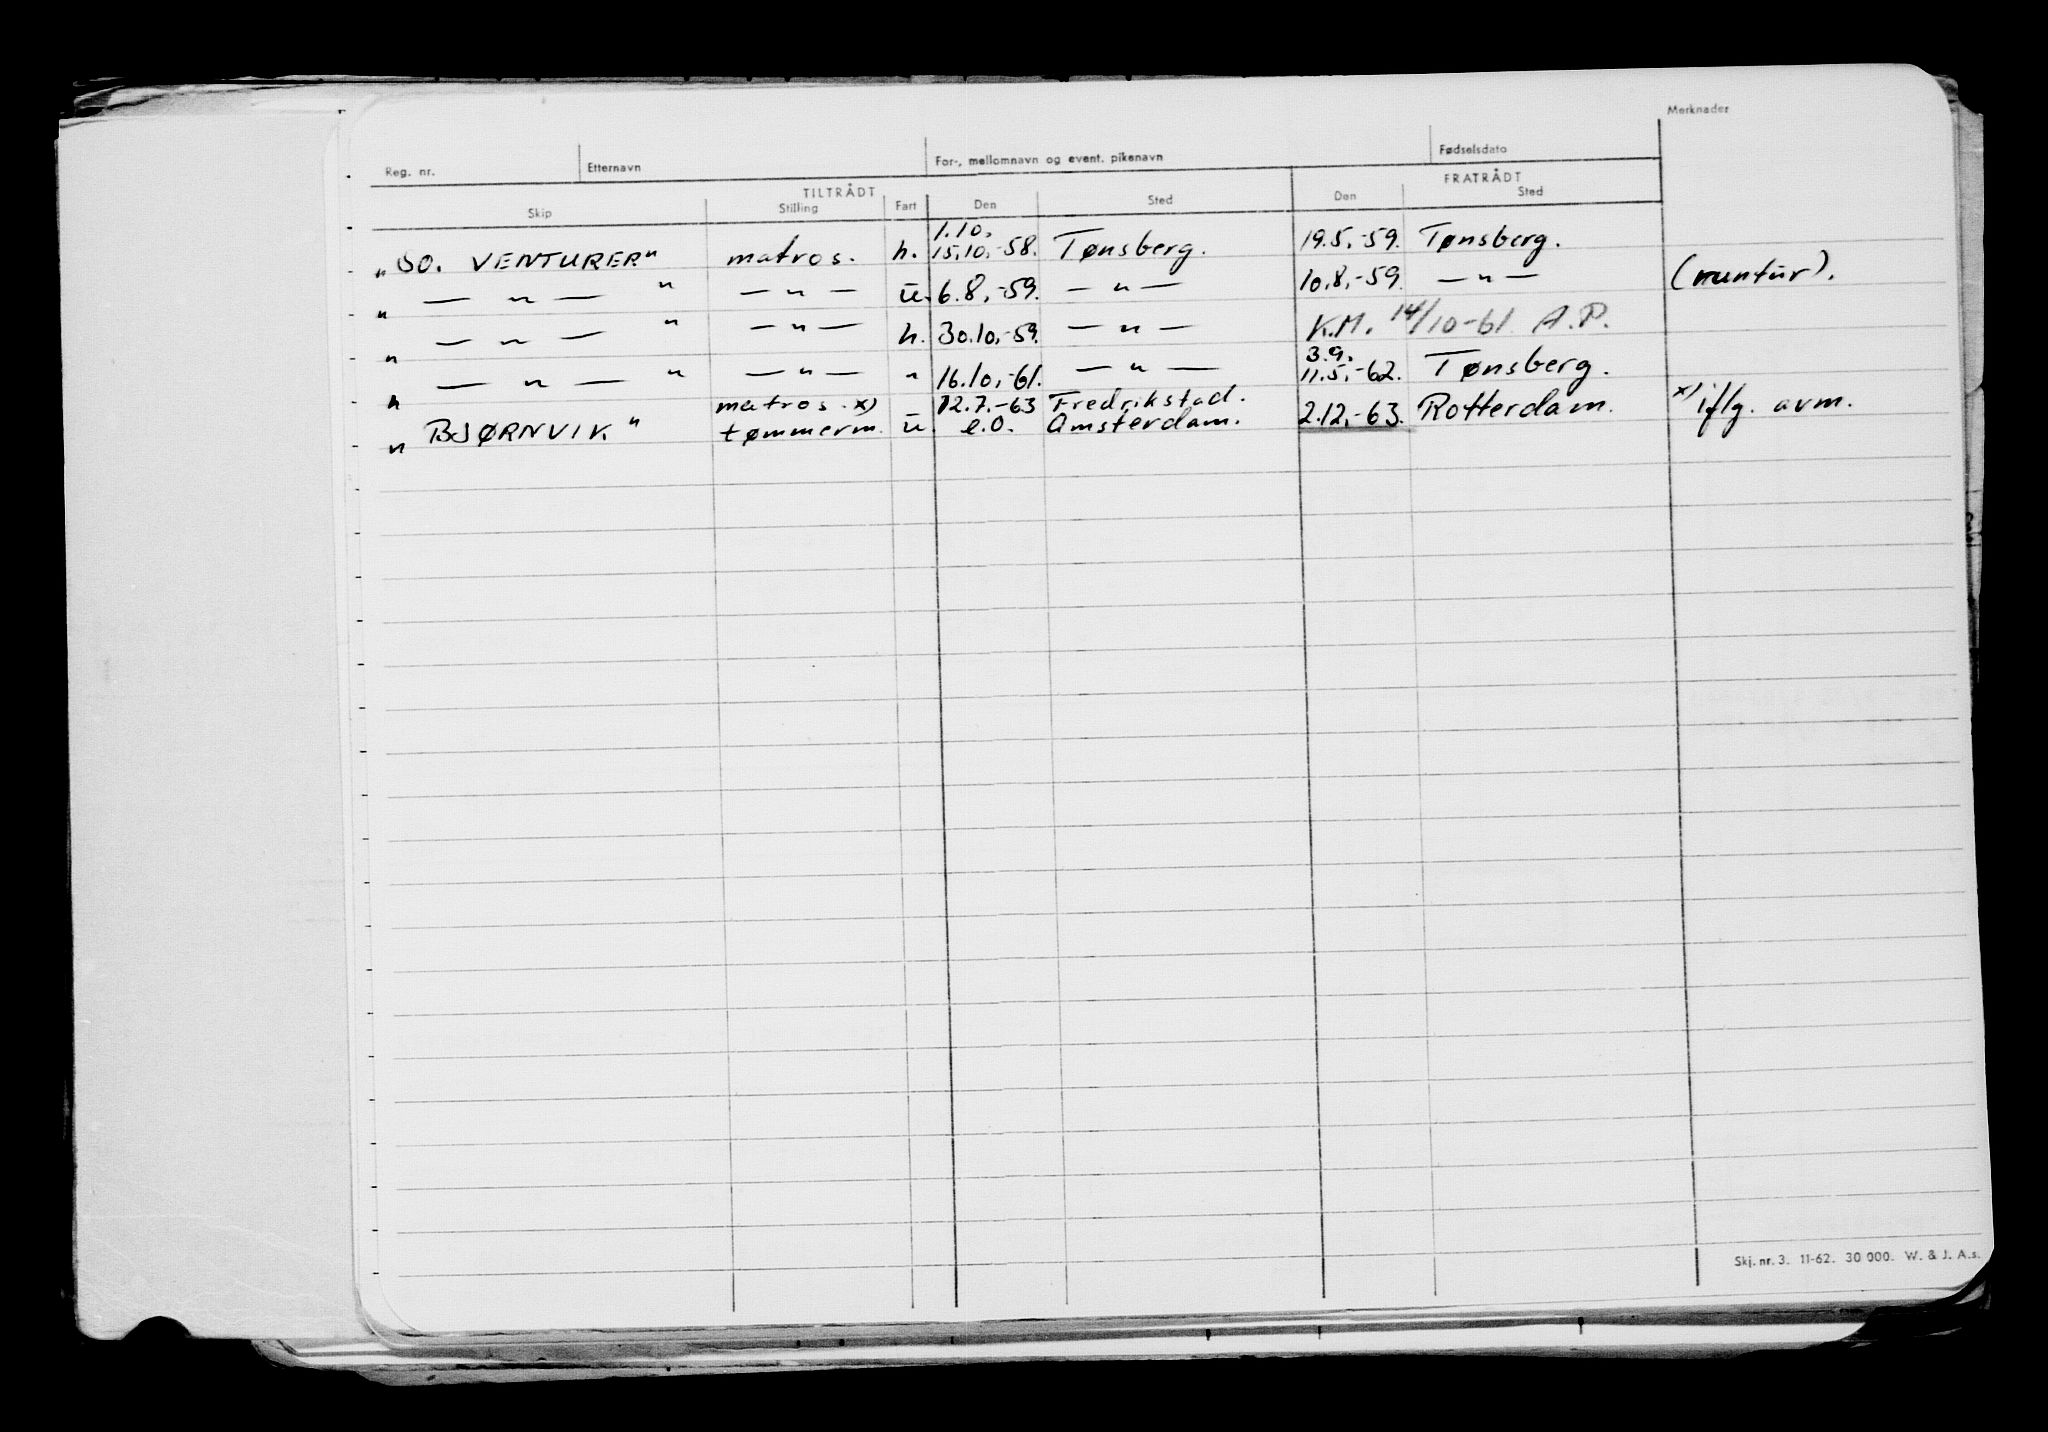 Merknader
Reg. nr. Etternavn For-, mellomnavn og event. pikenavn Fødselsdato
TILTRÅDT FRATRÅDT
Skip Stilling Fart Den Sted Den Sted
1.10.
"SO. VENTURER" matros. h. 15.10.-58. Tønsberg. 19.5.-59. Tønsberg.
" — " — " — " — u. 6.8.-59. — " — 10.8.-59. — " — (runtur).
" — " — " — " — h. 30.10.-59. — " — K.M. 14/10-61 A.P.
3.9.
" — " — " — " — " 16.10.-61. — " — 11.5.-62. Tønsberg.
matros. x) 12.7.-63 Fredrikstad.
"BJØRNVIK" tømmerm. u. e.o. Amsterdam. 2.12.-63. Rotterdam. x) iflg. avm.
Skj. nr. 3. 11-62. 30 000. W. & J. A.s.